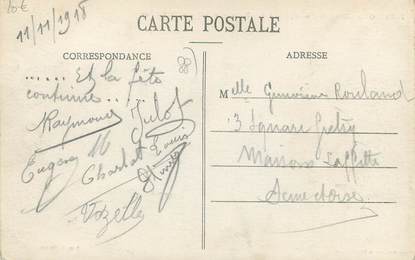 10€
11/11/1918
CARTE POSTALE
CORRESPONDANCE
ADRESSE
...... Et la fête
continue ......
Raymond Julot
Eugène M
Charlot Louis
Vozelle
Melle Geneviève Rouland
3 Square Gretry
Maisons Laffitte
Seine et Oise